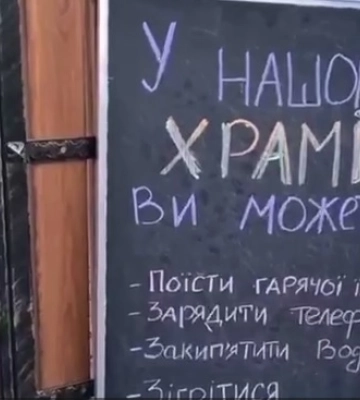 У НАШО
ХРАМІ
ВИ МОЖЕ
- ПОЇСТИ ГАРЯЧОЇ Ї
- ЗАРЯДИТИ ТЕЛЕФ
- ЗАКИП'ЯТИТИ ВОД
- ЗІГРІТИСЯ